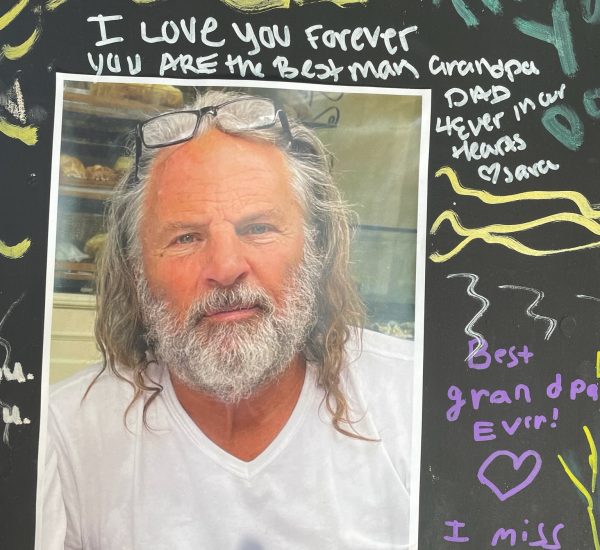 I Love you Forever
you ARE the Best man Grandpa
DAD
4Ever in our
Hearts
♡Sara
Best
grandpa
Ever!
I miss